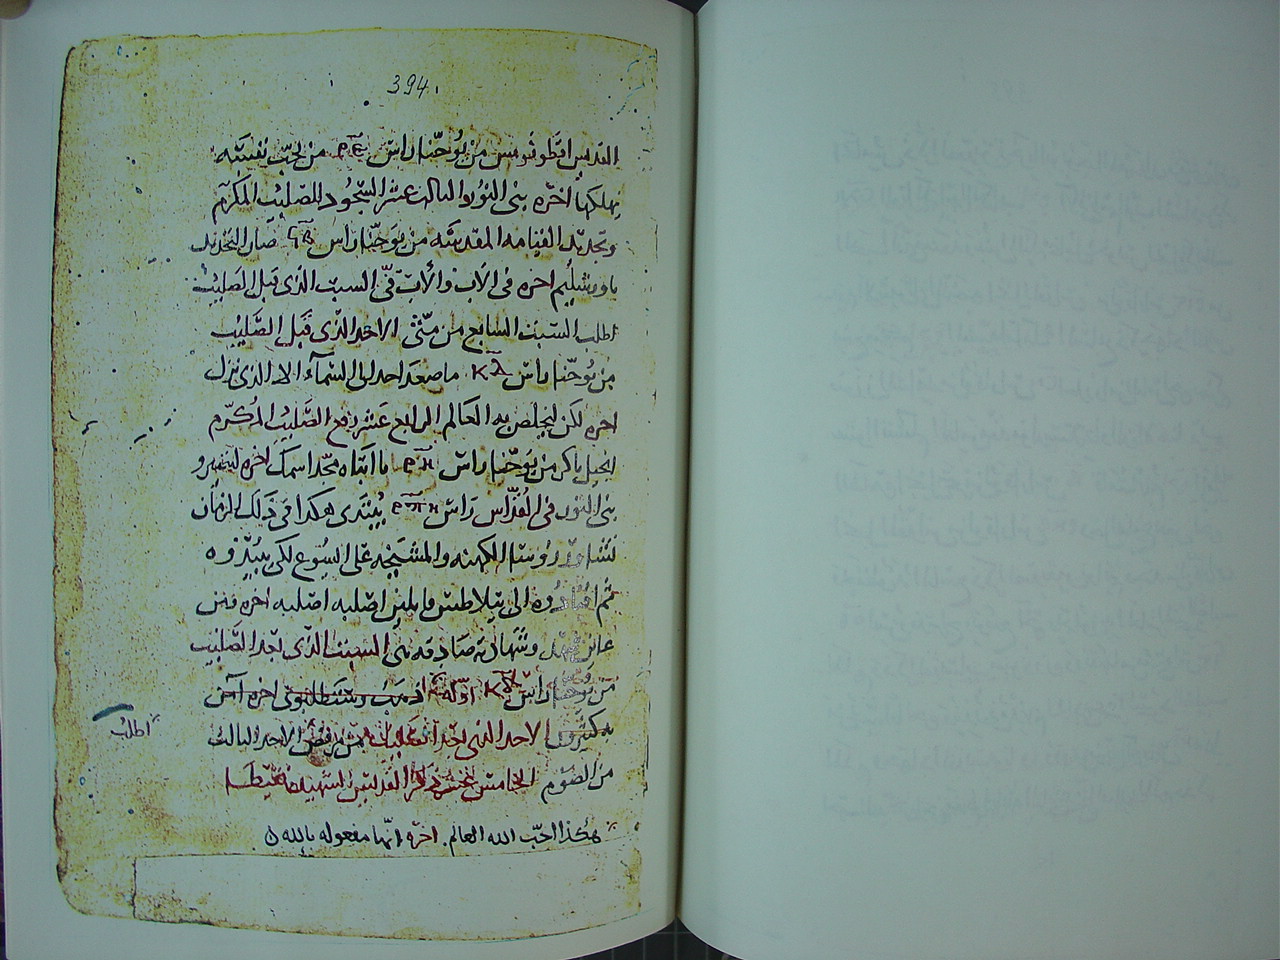 394
القديس افطونومس من يوحنا راس ρε من يحب نفسه
يهلكها اخره بنى النور الثالث عشر السجود للصليب المكرم
وتجديد القيامه المقدسه من يوحنا راس صار التجديد
باورشليم اخره فى الاب والاب فىّ السبت الذى قبل الصليب
اطلب السبت السابع من متى الاحد الذى قبل الصليب
من يوحنا راس κλ ما صعد احد الى السماء الا الذى نزل
اخره لكن ليخلص به العالم الرابع عشر رفع الصليب المكرم
انجيل باكر من يوحنا راس ρη يا ابتاه مجد اسمك اخره ليصيرو
بنى النور فى القداس راس يبتدى هكذا فى ذلك الزمان
تشاور روسا الكهنه والمشيخه على اليسوع لكى يبيدوه
ثم اقتادوه الى بيلاطس قايلين اصلبه اصلبه اخره فمن
عاين شهد وشهادته صادقه هى السبت الذى بعد الصليب
من يوحنا راس κλ اوله اذهب وستطلبونى اخره امن
به كثيرون الاحد الذى بعد الصليب من مرقص الاحد الثالث
من الصوم الخامس عشر ذكر القديس الشهيد نيقيطا
هكذا احب الله العالم. اخره انها مفعوله بالله
اطلب